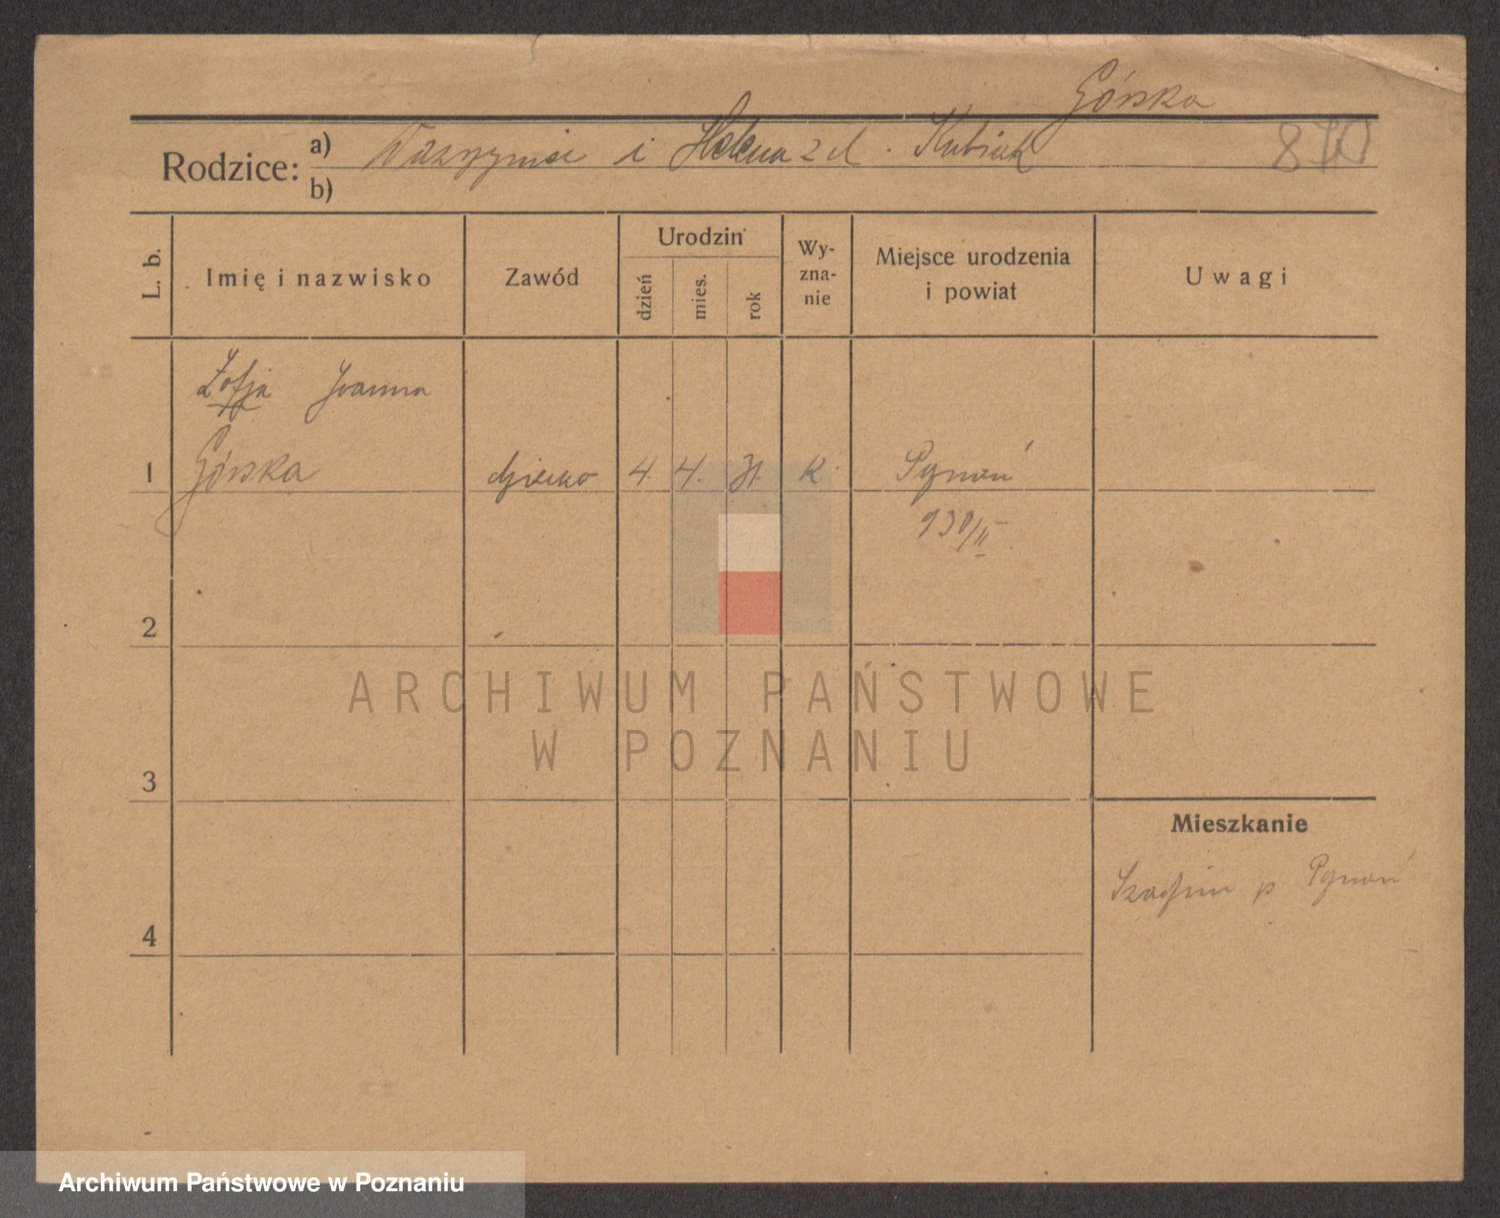 Górska
Rodzice: a) Wawrzyniec i Helena z d. Kubiak 810
b)
L. b. Imię i nazwisko Zawód Urodzin dzień mies. rok Wy-zna-nie Miejsce urodzenia i powiat Uwagi
Zofja Joanna
1 Górska dziecko 4. 4. 31. k. Poznań
930/II
2
ARCHIWUM PAŃSTWOWE
W POZNANIU
3
Mieszkanie
p. Poznań
4
Archiwum Państwowe w Poznaniu